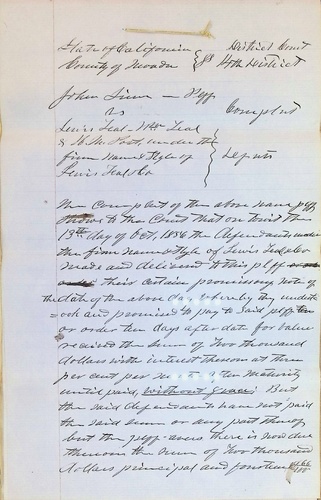 State of California } District Court
County of Nevada } ss 14th District
John Sime — Plff
vs Complaint
Lewis Teal Wm Teal
& H. M. under the
firm name & style of Defnts
Lewis Teal & Co
The Complaint of the above name plff
shows to the Court that on towit the
13th day of Oct, 1856 the defendants under
the firm name & style of Lewis Teal & Co
made and delivered to this plff
their certain promissory note of
the date of the above day whereby they undert
ook and promised to pay to said plff
or order ten days after date for value
received the sum of Two thousand
dollars with interest thereon at three
per cent per after maturity
until paid, without grace. But
the said defendants have not paid
the said sum or any part thereof
but the plff avers there is now due
thereon the sum of Two thousand
dollars principal and fourteen 66/100